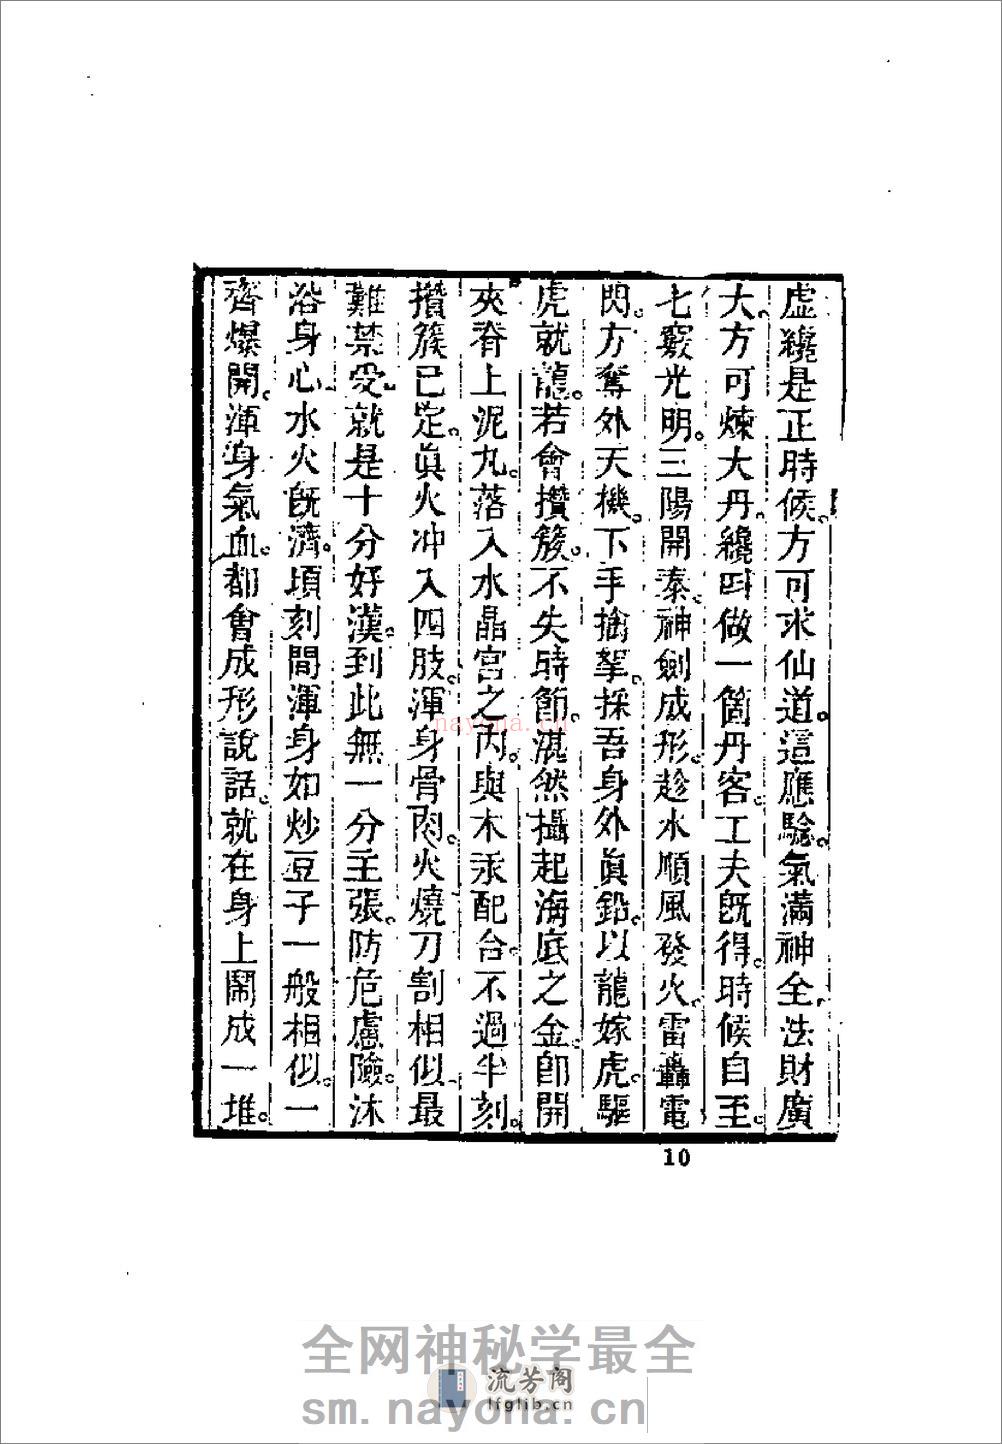 虛纔是正時候。方可求仙道。這應驗。氣滿神全。法財廣
大。方可煉大丹。纔叫做一箇丹客。工夫旣得。時候自至。
七竅光明。三陽開泰。神劍成形。趁水順風發火。雷轟電
閃。方奪外天機。下手擒拏。採吾身外眞鉛。以龍嫁虎。驅
虎就龍。若會攢簇。不失時節。湛然攝起海底之金。卽開
夾脊上泥丸。落入水晶宮之內。與木汞配合。不過半刻。
攢簇已定。眞火冲入四肢。渾身骨肉。火燒刀割相似。最
難禁受。就是十分好漢。到此無一分主張。防危慮險。沐
浴身心。水火旣濟。頃刻間渾身如炒豆子一般相似。一
齊爆開。渾身氣血。都會成形說話。就在身上鬧成一堆。
10
nayona.cn
全网神秘学最全
流芳阁
lfglib.cn
sm.nayona.cn